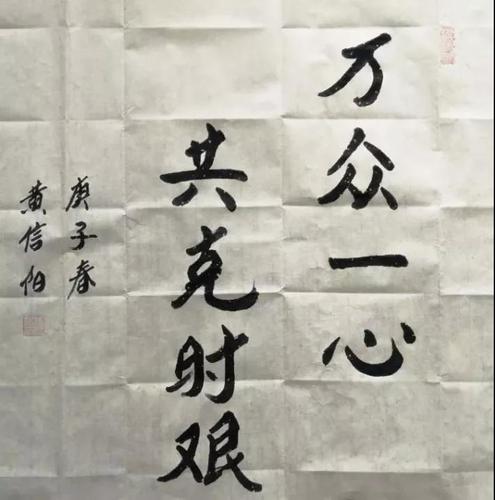 万众一心
共克时艰
庚子春
黄信阳